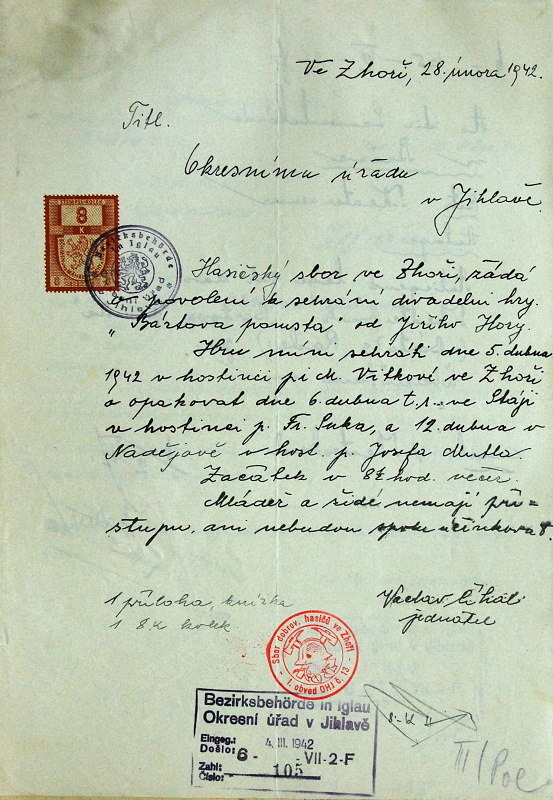 Ve Zhoři, 28. února 1942.
Titl.
Okresnímu úřadu
v Jihlavě.
STEMPEL-KOLEK
8
K
Bezirksbehörde in Iglau
Okresní úřad v Jihlavě
Hasičský sbor ve Zhoři, žádá
o povolení k sehrání divadelní hry.
„Bártova pomsta" od Jiřího Hory.
Hru míní sehráti dne 5. dubna
1942 v hostinci pí M. Vítkové ve Zhoři
a opakovat dne 6. dubna t. r. ve Stáji
v hostinci p. Fr. Suka, a 12. dubna v
Nadějově v host. p. Josefa Mutla.
Začátek v 8½ hod. večer.
Mládež a židé nemají pří=
stupu, ani nebudou spolu účinkovat.
1 příloha, knížka
1 8.K kolek
Václav Číhal
jednatel
Sbor dobrov. hasičů ve Zhoři
I. obvod OHJ č. 13
Bezirksbehörde in Iglau
Okresní úřad v Jihlavě
Eingeg.:
Došlo: 4. III. 1942
6- VII-2-F
Zahl:
Číslo: 105
8.-K
III/Pol